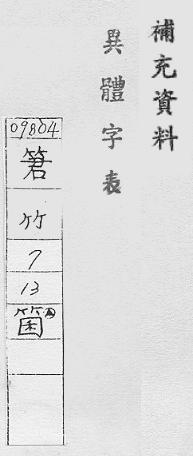 補充資料
異體字表
09804
䇹
竹
7
13
箘